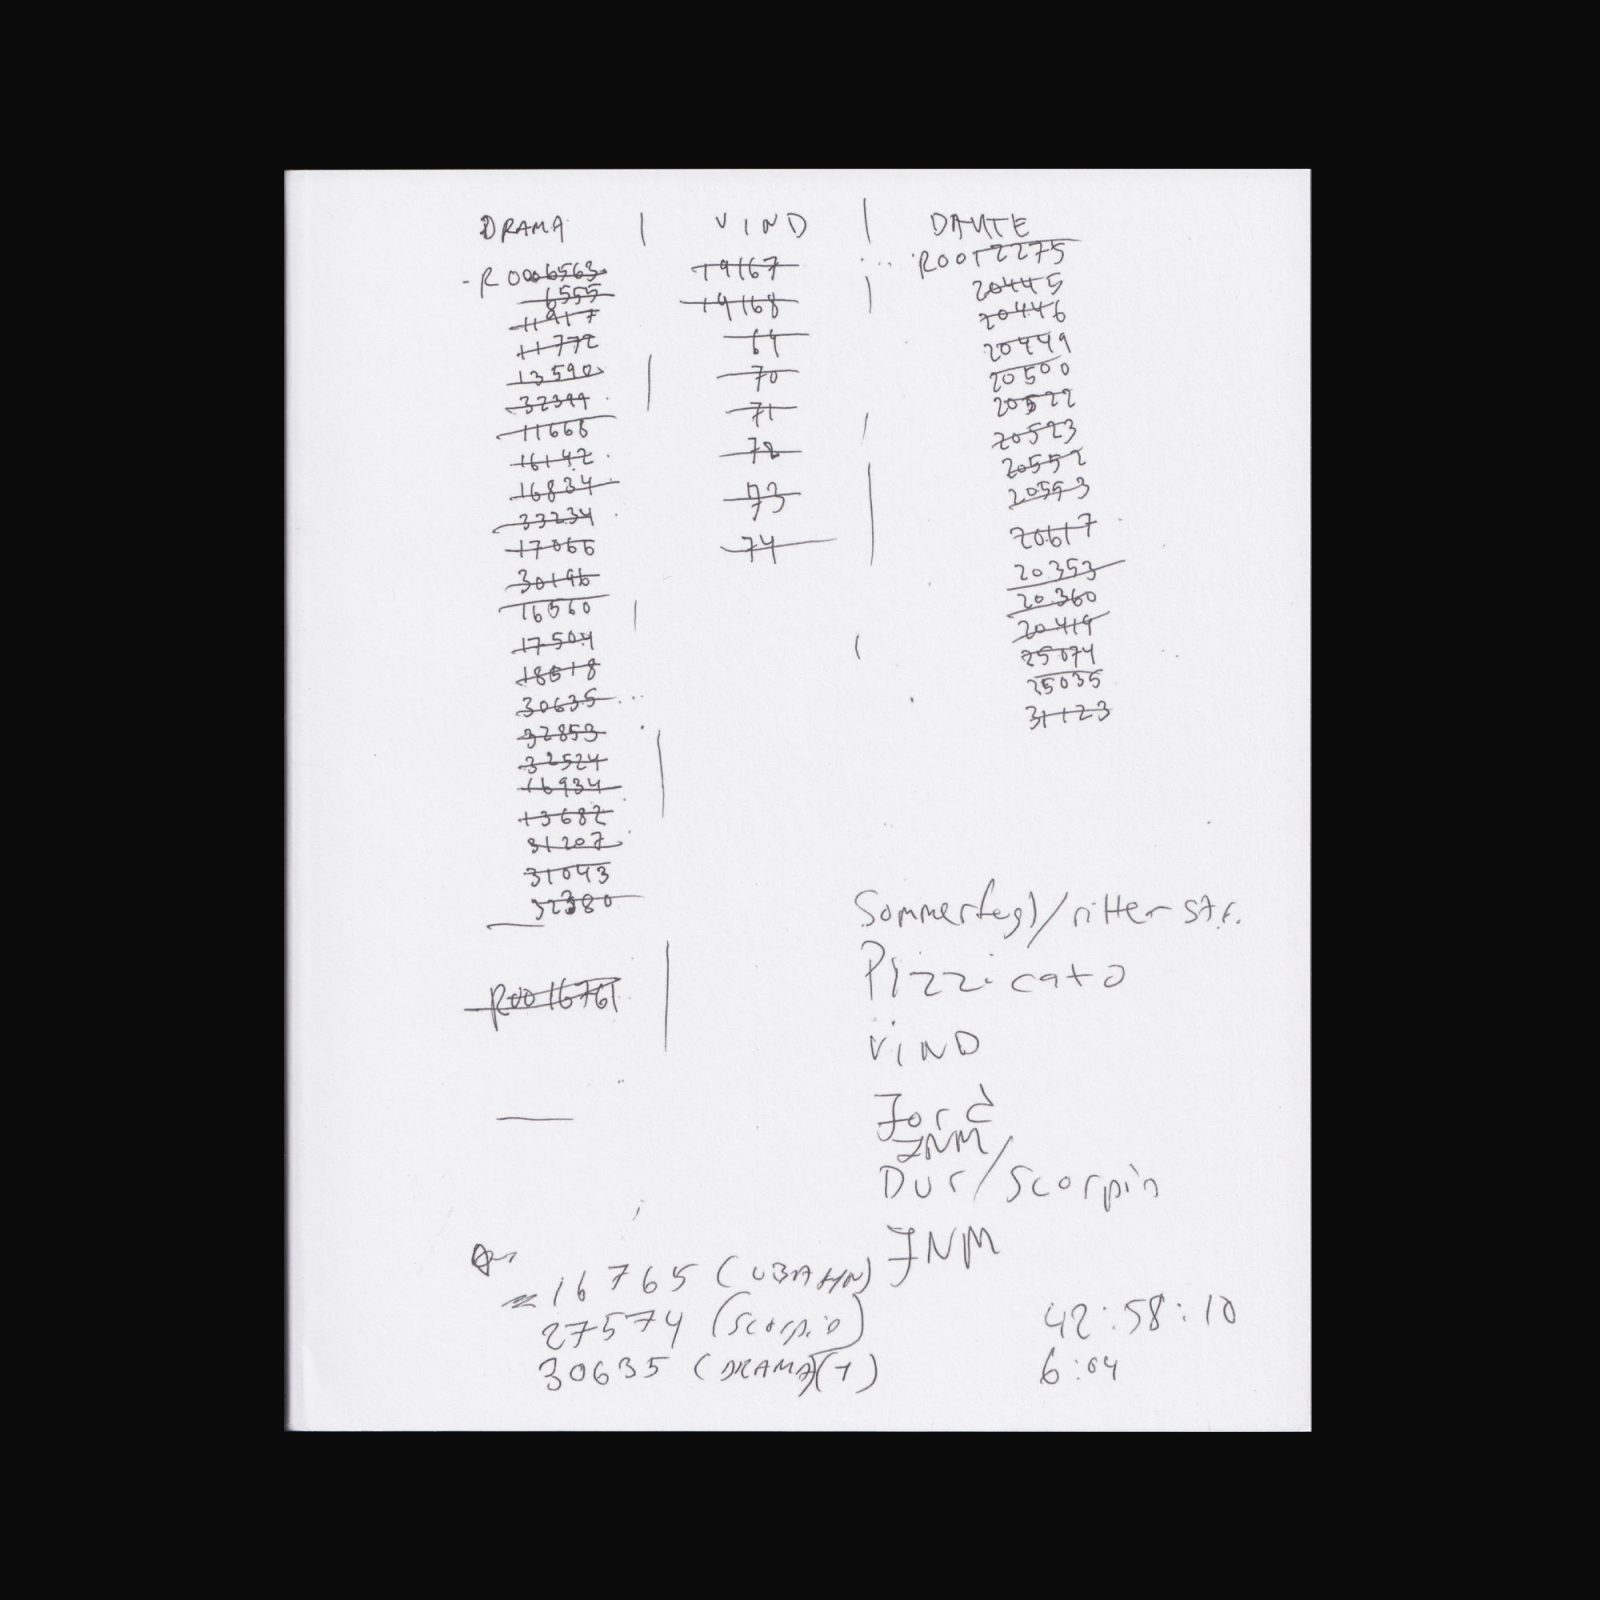 DRAMA | VIND | DANTE
R0006563
6555
11917
11772
13590
32399
11666
16142
16834
33234
17066
30196
16560
17504
18618
30635
32853
32524
16934
13682
31207
31043
32380
R0016761
19167
19168
69
70
71
72
73
74
R0012275
20445
20446
20449
20500
20522
20523
20552
20553
20617
20353
20360
20419
25074
25035
31123
/ritterstr.
Pizzicato
VIND
JNM
Dur/Scorpio
JNM
16765 (UBAHN)
27574 (Scorpio)
30635 (DRAMA)(1)
42:58:10
6:04